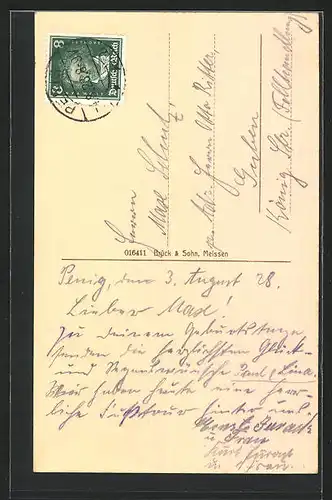 8 Deutsches Reich 8
Herrn
Max
Adr. Herrn Otto Ritter,
Guben
König Str. (Fellhandlung)
016411 Brück & Sohn, Meissen
Penig, den 3. August 28.
Lieber Max!
Zu deinem Geburtstage
senden die herzlichsten Glück-
und Segenswünsche Paul & Lina.
Wir haben heute eine herr-
liche Fußtour hinter uns!
u. Frau
Kurt
u. Frau.